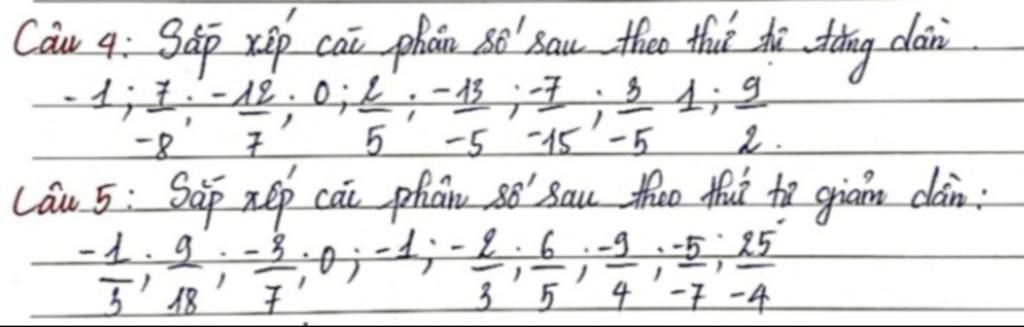 Câu 4: Sắp xếp các phân số sau theo thứ tự tăng dần.
-1; 7/-8; -12/7; 0; 2/5; -13/-5; -7/-15; 3/-5 1; 9/2.
Câu 5: Sắp xếp các phân số sau theo thứ tự giảm dần:
-1/3; 9/18; -3/7; 0; -1; -2/3; 6/5; -9/4; -5/-7; 25/-4